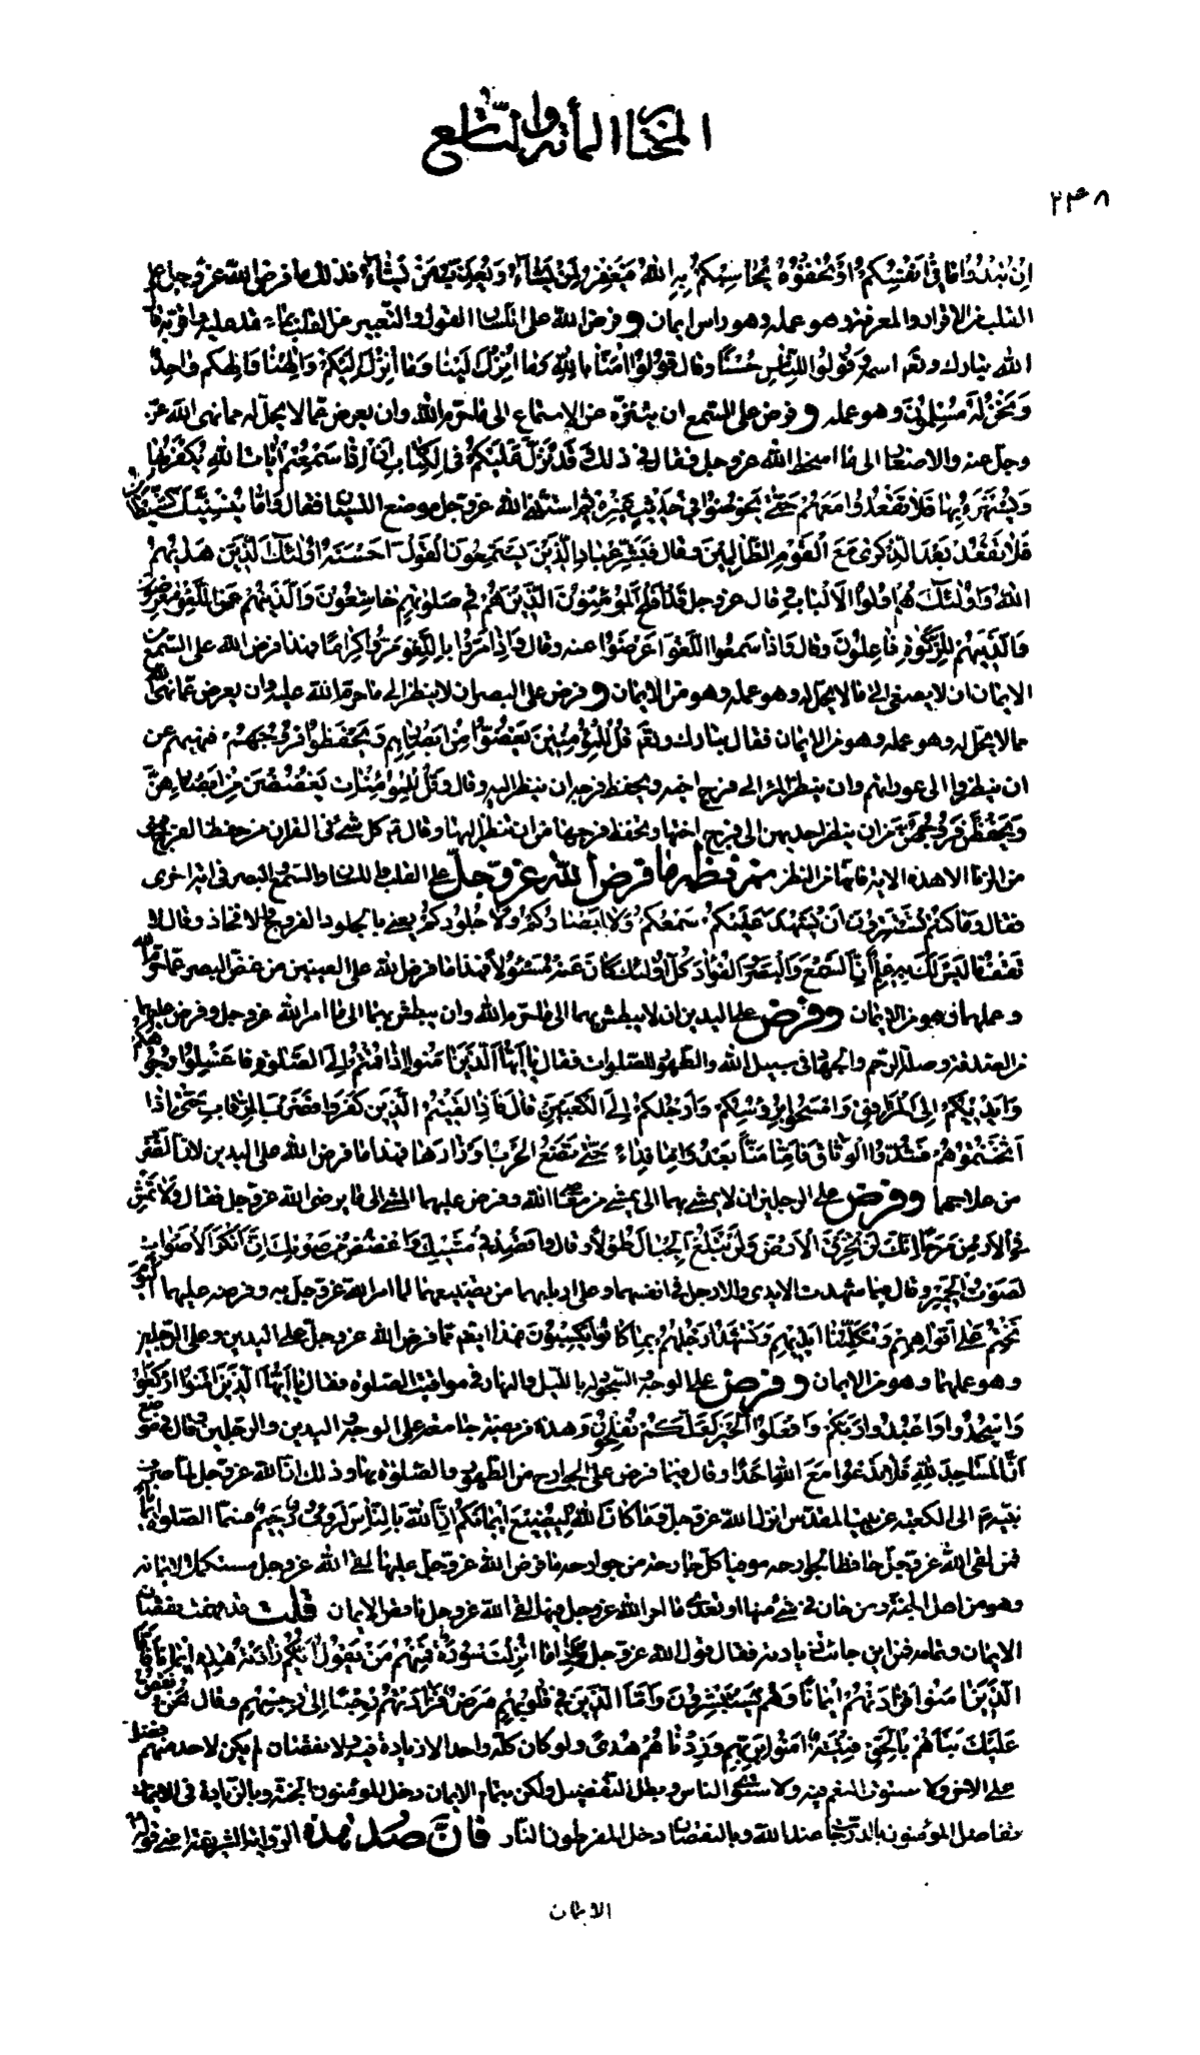 المختار المأة والتاسع
٢٣٨
اِنْ تُبْدُوا مٰا فِي أَنْفُسِكُمْ أَوْ تُخْفُوهُ يُحٰاسِبْكُمْ بِهِ اللّٰهُ فَيَغْفِرُ لِمَنْ يَشٰاءُ وَيُعَذِّبُ مَنْ يَشٰاءُ فذلك ما فرض اللّه عزّ وجل على
القلب من الاقرار والمعرفة وهو عمله وهو رأس الايمان وفرض اللّه على اللسان القول والتعبير عن القلب بما عقد عليه واقرّ به قال
اللّه تبارك وتعم اسمه وَقُولُوا لِلنّٰاسِ حُسْناً وقال قُولُوا اٰمَنّٰا بِاللّٰهِ وَمٰا اُنْزِلَ اِلَيْنٰا وَمٰا اُنْزِلَ اِلَيْكُمْ وَاِلٰهُنٰا وَاِلٰهُكُمْ وٰاحِدٌ
وَنَحْنُ لَهُ مُسْلِمُونَ وهو عمله وفرض على السّمع ان يتنزّه عن الاستماع الى ما حرّم اللّه وان يعرض عمّا لا يحلّ له مما نهى اللّه عزّ
وجلّ عنه والاصغاء الى ما اسخط اللّه عزوجل فقال في ذلك وَقَدْ نَزَّلَ عَلَيْكُمْ فِى الْكِتٰابِ اَنْ اِذٰا سَمِعْتُمْ اٰيٰاتِ اللّٰهِ يُكْفَرُ بِهٰا
وَيُسْتَهْزَءُ بِهٰا فَلٰا تَقْعُدُوا مَعَهُمْ حَتّٰى يَخُوضُوا فِى حَدِيثٍ غَيْرِهِ ثم استثنى اللّه عزوجل موضع النسيان فقال وَاِمّٰا يُنْسِيَنَّكَ الشَّيْطٰانُ
فَلٰا تَقْعُدْ بَعْدَ الذِّكْرىٰ مَعَ الْقَوْمِ الظّٰالِمِينَ وقال فَبَشِّرْ عِبٰادِ الَّذِينَ يَسْتَمِعُونَ الْقَوْلَ فَيَتَّبِعُونَ اَحْسَنَهُ اُولٰئِكَ الَّذِينَ هَدٰيهُمُ
اللّٰهُ وَاُولٰئِكَ هُمْ اُولُوا الْاَلْبٰابِ وقال عزوجل قَدْ اَفْلَحَ الْمُؤْمِنُونَ الَّذِينَ هُمْ فِى صَلٰوتِهِمْ خٰاشِعُونَ وَالَّذِينَ هُمْ عَنِ اللَّغْوِ مُعْرِضُونَ
وَالَّذِينَ هُمْ لِلزَّكٰوةِ فٰاعِلُونَ وقال وَاِذٰا سَمِعُوا اللَّغْوَ اَعْرَضُوا عنه وقال وَاِذٰا مَرُّوا بِاللَّغْوِ مَرُّوا كِرٰامًا فهذا ما فرض اللّه على السّمع من
الايمان ان لا يصغى الى ما لا يحلّ له وهو عمله وهو من الايمان وفرض على البصر ان لا ينظر الى ما حرّم اللّه عليه وان يعرض عمّا نهى اللّه
مما لا يحلّ له وهو عمله وهو من الايمان فقال تبارك وتعم قُلْ لِلْمُؤْمِنِينَ يَغُضُّوا مِنْ اَبْصٰارِهِمْ وَيَحْفَظُوا فُرُوجَهُمْ فنهيهم عن
ان ينظروا الى عوراتهم وان ينظر المرء الى فرج اخيه ويحفظ فرجه ان ينظر اليه وقال وَقُلْ لِلْمُؤْمِنٰاتِ يَغْضُضْنَ مِنْ اَبْصٰارِهِنَّ
وَيَحْفَظْنَ فُرُوجَهُنَّ من ان ينظر احديهن الى فرج اختها وتحفظ فرجها من ان تنظر اليها وقال كل شئ فى القران من حفظ الفرج فهو
من الزنا الا هذه الاية فانّها من النظر ثم نظم ما فرض اللّه عزّ وجلّ على القلب واللسان والسّمع والبصر في اية اخرى
فقال وَمٰا كُنْتُمْ تَسْتَتِرُونَ اَنْ يَشْهَدَ عَلَيْكُمْ سَمْعُكُمْ وَلٰا اَبْصٰارُكُمْ وَلٰا جُلُودُكُمْ يعنى بالجلود الفروج والافخاذ وقال وَلٰا
تَقْفُ مٰا لَيْسَ لَكَ بِهِ عِلْمٌ اِنَّ السَّمْعَ وَالْبَصَرَ وَالْفُؤٰادَ كُلُّ اُولٰئِكَ كٰانَ عَنْهُ مَسْئُولًا فهذا ما فرض اللّه على العينين من غضّ البصر عمّا حرّم اللّه
وعملهما وهو من الايمان وفرض على اليدين ان لا يبطش بهما الى ما حرّم اللّه وان يبطش بهما الى ما امر اللّه عزوجل وفرض عليهما
من الصدقة وصلة الرّحم والجهاد في سبيل اللّه والطّهور للصلوات فقال يٰا اَيُّهَا الَّذِينَ اٰمَنُوا اِذٰا قُمْتُمْ اِلَى الصَّلٰوةِ فَاغْسِلُوا وُجُوهَكُمْ
وَاَيْدِيَكُمْ اِلَى الْمَرٰافِقِ وَامْسَحُوا بِرُؤُسِكُمْ وَاَرْجُلَكُمْ اِلَى الْكَعْبَيْنِ قال فَاِذٰا لَقِيتُمُ الَّذِينَ كَفَرُوا فَضَرْبَ الرِّقٰابِ حَتّٰى اِذٰا
اَثْخَنْتُمُوهُمْ فَشُدُّوا الْوَثٰاقَ فَاِمّٰا مَنّاً بَعْدُ وَاِمّٰا فِدٰاءً حَتّٰى تَضَعَ الْحَرْبُ اَوْزٰارَهٰا فهذا ما فرض اللّه على اليدين لانّ الضرب
من علاجهما وفرض على الرجلين ان لا يمشى بهما الى شئ من معاصى اللّه وفرض عليهما المشى الى ما يرضى اللّه عزوجل فقال وَلٰا تَمْشِ
فِى الْاَرْضِ مَرَحًا اِنَّكَ لَنْ تَخْرِقَ الْاَرْضَ وَلَنْ تَبْلُغَ الْجِبٰالَ طُولًا وقال وَاقْصِدْ فِى مَشْيِكَ وَاغْضُضْ مِنْ صَوْتِكَ اِنَّ اَنْكَرَ الْاَصْوٰاتِ
لَصَوْتُ الْحَمِيرِ وقال فيما شهدت الايدى والارجل فى انفسهما وعلى اربابهما من تضييعهما لما امر اللّه عزّ وجل به وفرضه عليهما اَلْيَوْمَ
نَخْتِمُ عَلٰى اَفْوٰاهِهِمْ وَتُكَلِّمُنٰا اَيْدِيهِمْ وَتَشْهَدُ اَرْجُلُهُمْ بِمٰا كٰانُوا يَكْسِبُونَ فهذا ايضا ممّا فرض اللّه عزوجلّ على اليدين وعلى الرّجلين
وهو عملهما وهو من الايمان وفرض على الوجه السّجود له بالليل والنهار في مواقيت الصلوة فقال يٰا اَيُّهَا الَّذِينَ اٰمَنُوا ارْكَعُوا
وَاسْجُدُوا وَاعْبُدُوا رَبَّكُمْ وَافْعَلُوا الْخَيْرَ لَعَلَّكُمْ تُفْلِحُونَ وهذه فريضة جامعة على الوجه واليدين والرّجلين وقال فى موضع
اَنَّ الْمَسٰاجِدَ لِلّٰهِ فَلٰا تَدْعُوا مَعَ اللّٰهِ اَحَدًا وقال فيما فرض على الجوارح من الطّهور والصّلوة بها وذلك انّ اللّه عزوجل لمّا صرف
نبيّه الى الكعبة عن بيت المقدس انزل اللّه عزّ وجلّ وَمٰا كٰانَ اللّٰهُ لِيُضِيعَ اِيمٰانَكُمْ اِنَّ اللّٰهَ بِالنّٰاسِ لَرَؤُفٌ رَحِيمٌ فسمّى الصّلوة ايمانا
فمن لقى اللّه عزّ وجلّ حافظا لجوارحه موفيا كلّ جارحة من جوارحه ما فرض اللّه عزّ وجلّ عليها لقى اللّه عزوجل مستكملا لايمانه
وهو من اهل الجنّة ومن خان فى شئ منها او تعدّى ما امر اللّه عزوجل فيها لقى اللّه عزوجل ناقص الايمان قلت قد فهمت نقصان
الايمان وتمامه فمن اين جائت زيادته فقال قول اللّه عزوجل وَاِذٰا مٰا اُنْزِلَتْ سُورَةٌ فَمِنْهُمْ مَنْ يَقُولُ اَيُّكُمْ زٰادَتْهُ هٰذِهِ اِيمٰانًا فَاَمَّا
الَّذِينَ اٰمَنُوا فَزٰادَتْهُمْ اِيمٰانًا وَهُمْ يَسْتَبْشِرُونَ وَاَمَّا الَّذِينَ فِى قُلُوبِهِمْ مَرَضٌ فَزٰادَتْهُمْ رِجْسًا اِلٰى رِجْسِهِمْ وقال نَحْنُ نَقُصُّ
عَلَيْكَ نَبَأَهُمْ بِالْحَقِّ اِنَّهُمْ فِتْيَةٌ اٰمَنُوا بِرَبِّهِمْ وَزِدْنٰاهُمْ هُدًى ولو كان كلّه واحدا لا زيادة فيه ولا نقصان لم يكن لاحد منهم فضل
على الاخر ولاستوت النعم فيه ولاستوى الناس وبطل التفضيل ولكن بتمام الايمان دخل المؤمنون الجنّة وبالزّيادة فى الايمان
تفاضل المؤمنون بالدّرجات عند اللّه وبالنقصان دخل المفرطون النّار فانّ صدر هذه الرّواية الشريفة اعنى قوله
الايمان